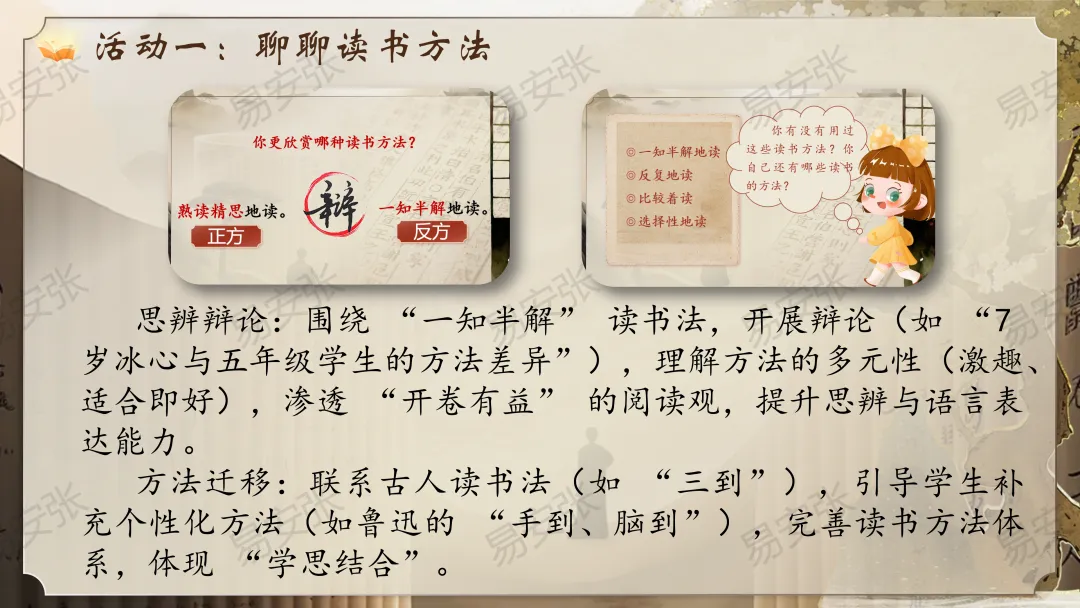 活动一：聊聊读书方法
你更欣赏哪种读书方法？
辩
熟读精思地读。
正方
一知半解地读。
反方
◎一知半解地读
◎反复地读
◎比较着读
◎选择性地读
你有没有用过
这些读书方法？你
自己还有哪些读书
的方法？
思辨辩论：围绕 “一知半解” 读书法，开展辩论（如 “7
岁冰心与五年级学生的方法差异”），理解方法的多元性（激趣、
适合即好），渗透 “开卷有益” 的阅读观，提升思辨与语言表
达能力。
方法迁移：联系古人读书法（如 “三到”），引导学生补
充个性化方法（如鲁迅的 “手到、脑到”），完善读书方法体
系，体现 “学思结合”。
易安张